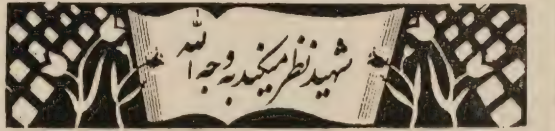 شهید نظر میکنید به وجه الله